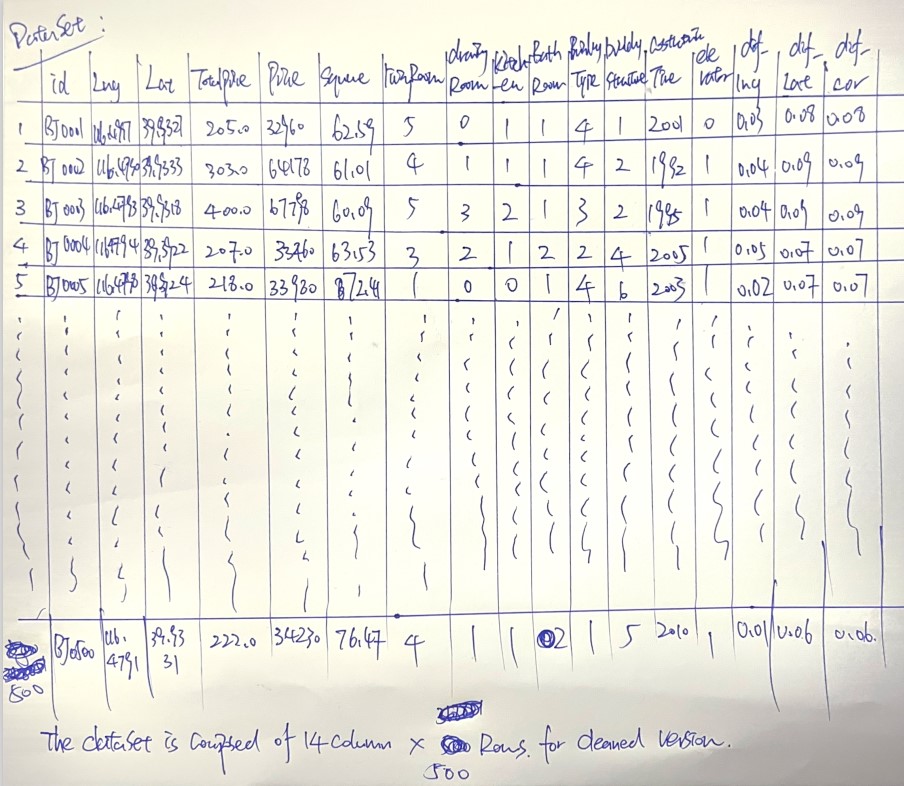 DaterSet:
id Lng Lat TotalPrice Price Square LivinRoom drawing Room Kitch-en Bath Room Building Type building Structure Time ele vator dif- lng dif- Late dif- cor
1 BJ0001 205.0 32960 62.59 5 0 1 1 4 1 2001 0 0.03 0.08 0.08
2 BJ0002 39.9333 303.0 64178 61.01 4 1 1 1 4 2 1992 1 0.04 0.09 0.09
3 BJ0003 116.4793 39.9318 400.0 67798 60.09 5 3 2 1 3 2 1985 1 0.04 0.09 0.09
4 BJ0004 116.4794 39.3922 207.0 33460 63.53 3 2 1 2 2 4 2005 1 0.05 0.07 0.07
5 BJ0005 218.0 33980 1 0 0 1 4 6 2003 1 0.02 0.07 0.07
500 BJ0500 116.4791 39.9331 222.0 34230 76.47 4 1 1 02 1 5 2010 1 0.01 0.06 0.06.
The dataset is compsed of 14 column × 500 Rows. for cleaned version.